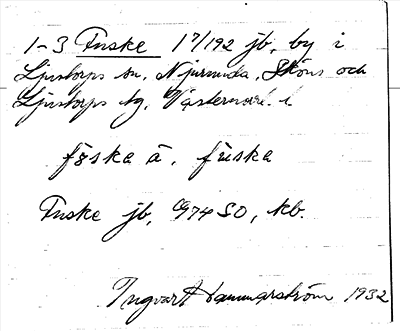 1-3 Fuske 17/192 jb, by i
Ljustorps sn, Njurunda, Sköns och
Ljustorps tg, Västernorrl. l
føska ä, fùska
Fuske jb, G74 SO, kb.
Ingvart Hammarström 1932